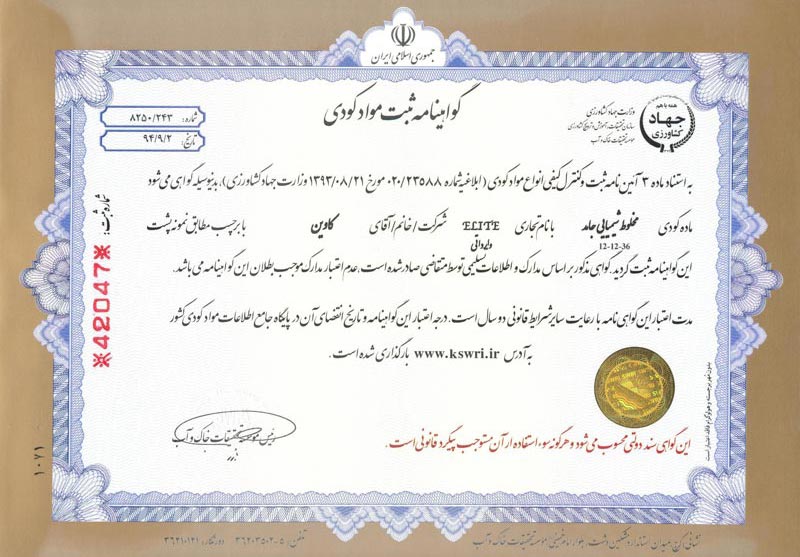 جمهوری اسلامی ایران
گواهینامه ثبت مواد کودی
همه با هم
جهاد
کشاورزی
وزارت جهاد کشاورزی
سازمان تحقیقات، آموزش و ترویج کشاورزی
موسسه تحقیقات خاک و آب
شماره: ۸۲۵۰/۲۴۳
تاریخ: ۹۴/۹/۲
به استناد ماده ۳ آئین نامه ثبت و کنترل کیفی انواع مواد کودی (ابلاغیه شماره ۰۲۰/۲۳۵۸۸ مورخ ۱۳۹۳/۰۸/۲۱ وزارت جهاد کشاورزی)، بدینوسیله گواهی می شود
ماده کودی مخلوط شیمیایی جامد با نام تجاری ELITE شرکت/خانم/آقای کاوین با برچسب مطابق نمونه پشت
12-12-36 وارداتی
این گواهینامه ثبت گردید. گواهی مذکور بر اساس مدارک و اطلاعات تسلیمی توسط متقاضی صادر شده است، عدم اعتبار مدارک موجب بطلان این گواهینامه می باشد.
مدت اعتبار این گواهی نامه با رعایت سایر شرایط قانونی دو سال است. درجه اعتبار این گواهینامه و تاریخ انقضای آن در پایگاه جامع اطلاعات مواد کودی کشور
به آدرس www.kswri.ir بارگذاری شده است.
شماره ثبت:
※42047※
رئیس موسسه تحقیقات خاک و آب
این گواهی سند دولتی محسوب می شود و هرگونه سوء استفاده از آن مستوجب پیگرد قانونی است.
بدون مهر برجسته و هولوگرام فاقد اعتبار است
۱۰۷۱
تلفن: ۵-۳۶۲۰۳۵۰۲ دورنگار: ۳۶۲۱۰۱۲۱